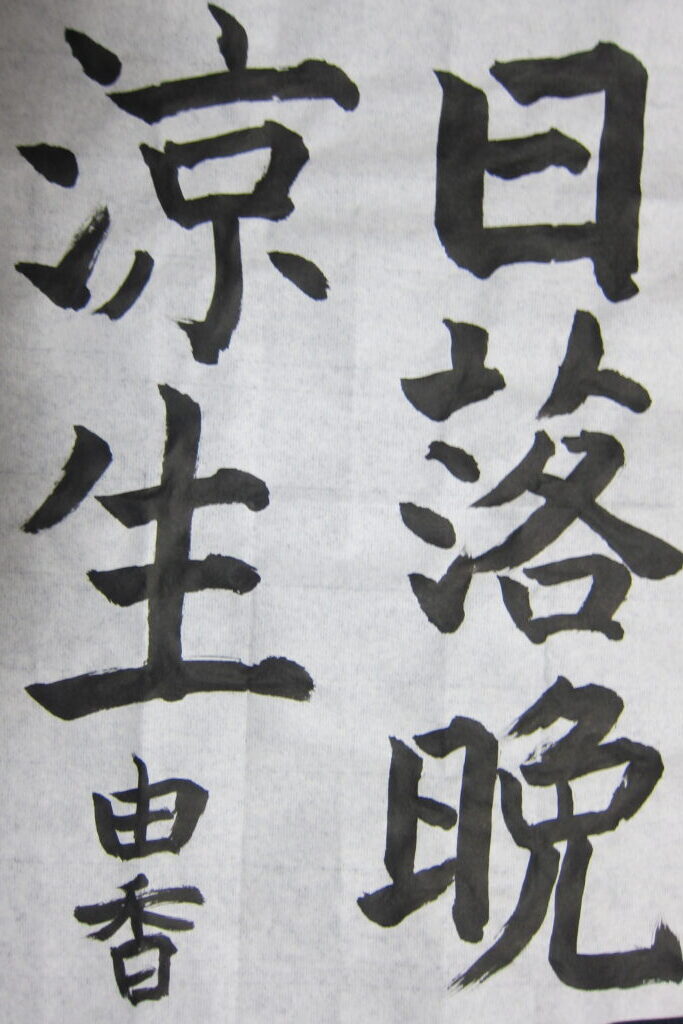 日落晩
涼生
由香